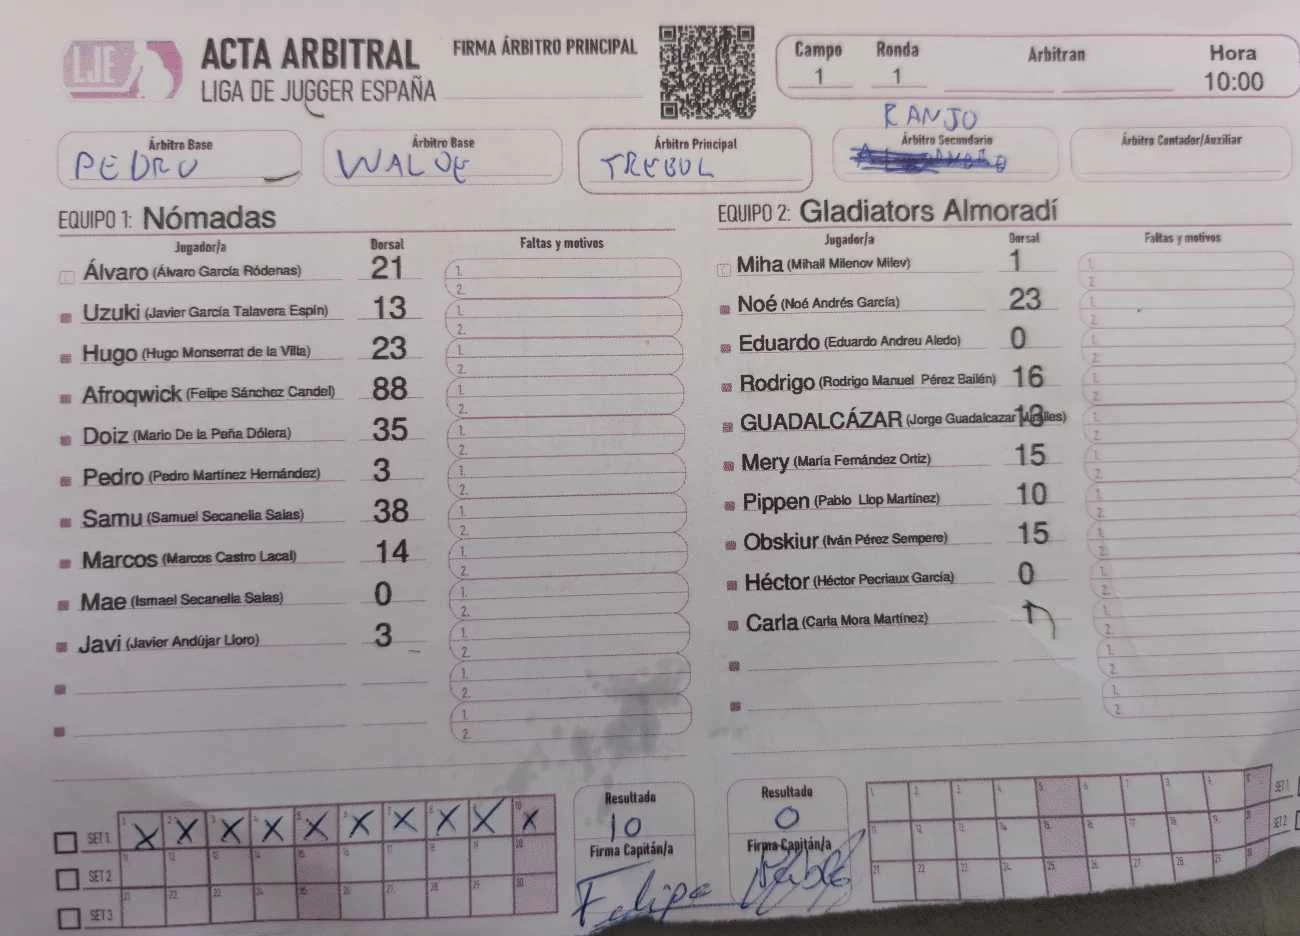 LJE
ACTA ARBITRAL
LIGA DE JUGGER ESPAÑA
FIRMA ÁRBITRO PRINCIPAL
Campo Ronda Arbitran Hora
1 1 10:00
Árbitro Base
PEDRO
Árbitro Base
WALDE
Árbitro Principal
TREBOL
RANJO
Árbitro Secundario
Árbitro Contador/Auxiliar
EQUIPO 1: Nómadas
Jugador/a Dorsal Faltas y motivos
Álvaro (Álvaro García Ródenas) 21 1. 2.
Uzuki (Javier García Talavera Espín) 13 1. 2.
Hugo (Hugo Monserrat de la Villa) 23 1. 2.
Afroqwick (Felipe Sánchez Candel) 88 1. 2.
Doiz (Mario De la Peña Dólera) 35 1. 2.
Pedro (Pedro Martínez Hernández) 3 1. 2.
Samu (Samuel Secanella Salas) 38 1. 2.
Marcos (Marcos Castro Lacal) 14 1. 2.
Mae (Ismael Secanella Salas) 0 1. 2.
Javi (Javier Andújar Lloro) 3 1. 2.
1. 2.
1. 2.
EQUIPO 2: Gladiators Almoradí
Jugador/a Dorsal Faltas y motivos
Miha (Mihail Milenov Milev) 1 1. 2.
Noé (Noé Andrés García) 23 1. 2.
Eduardo (Eduardo Andreu Aledo) 0 1. 2.
Rodrigo (Rodrigo Manuel Pérez Bailén) 16 1. 2.
GUADALCÁZAR (Jorge Guadalcazar Miralles) 13 1. 2.
Mery (María Fernández Ortiz) 15 1. 2.
Pippen (Pablo Llop Martínez) 10 1. 2.
Obskiur (Iván Pérez Sempere) 15 1. 2.
Héctor (Héctor Pecriaux García) 0 1. 2.
Carla (Carla Mora Martínez) 1. 2.
1. 2.
1. 2.
SET 1 1 X 2 X 3 X 4 X 5 X 6 X 7 X 8 X 9 X 10 X
SET 2 11 12 13 14 15 16 17 18 19 20
SET 3 21 22 23 24 25 26 27 28 29 30
Resultado
10
Firma Capitán/a
Felipe
Resultado
0
Firma Capitán/a
1 2 3 4 5 6 7 8 9 SET 1
11 12 13 14 15 16 17 18 19 SET 2
21 22 23 24 25 26 27 28 29